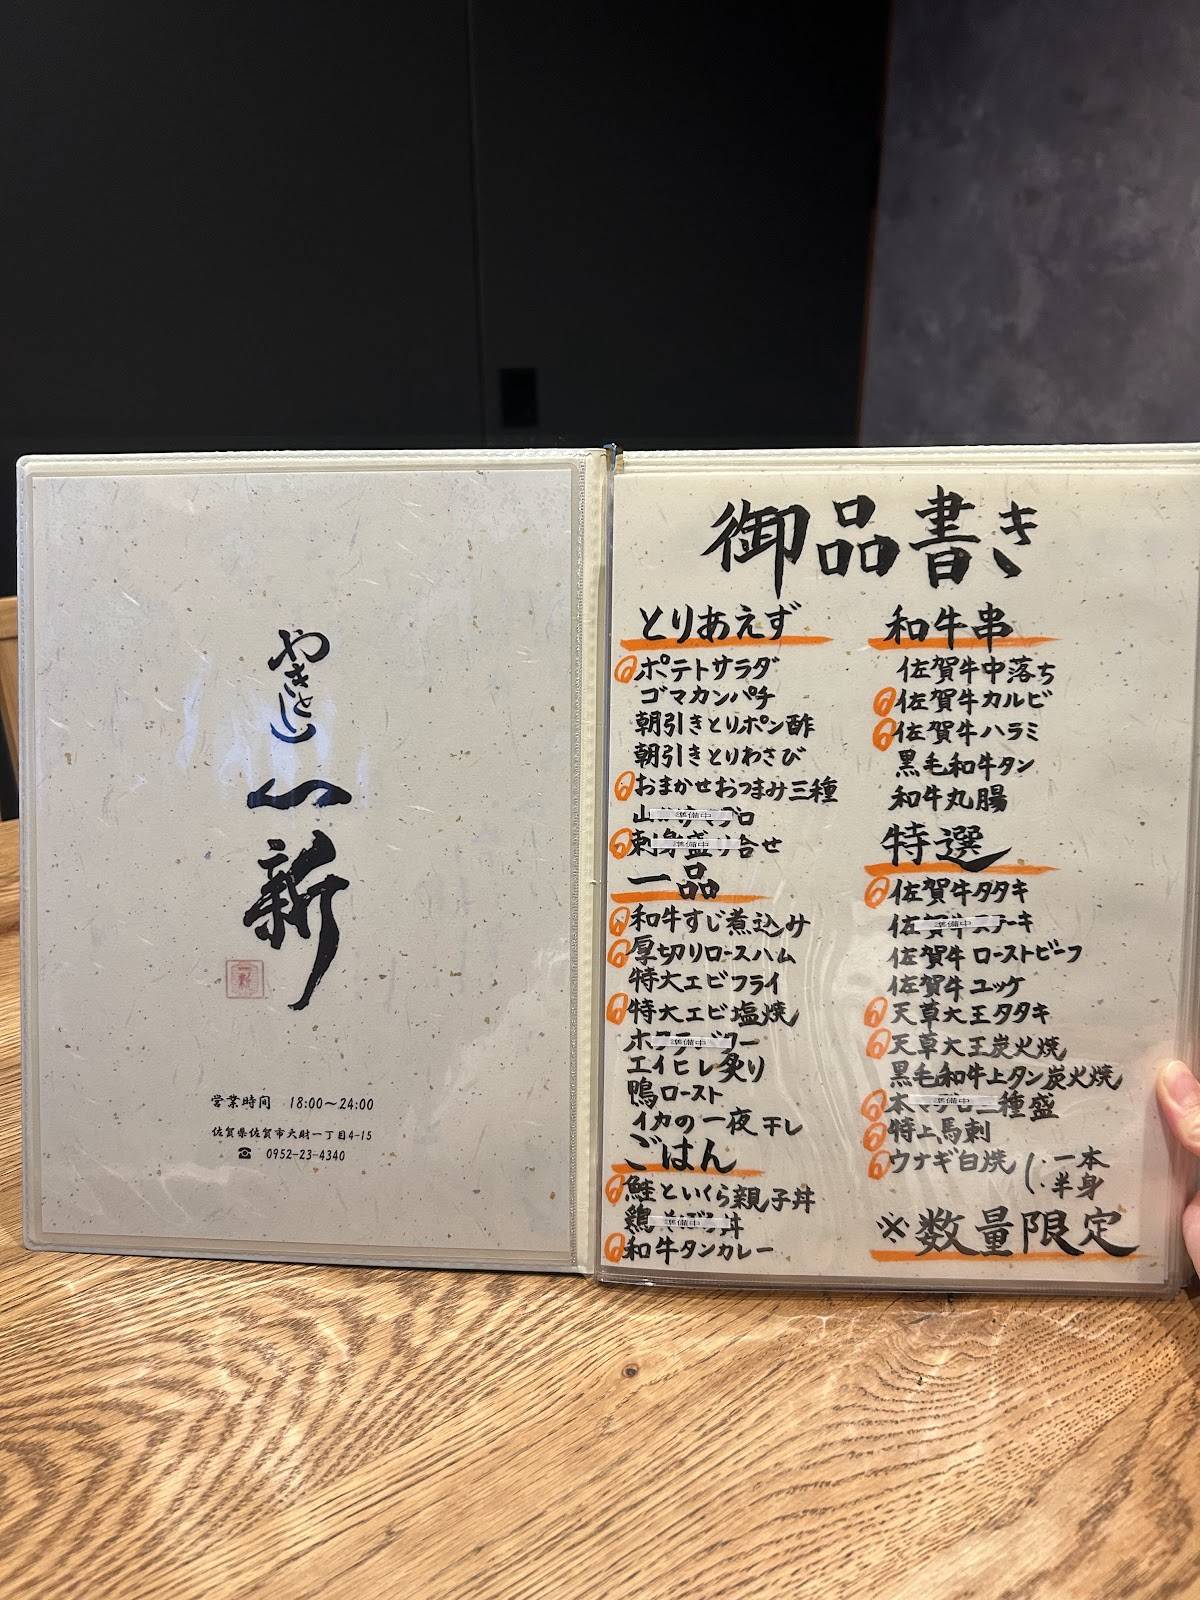 やきとり
一新
一新
営業時間 18:00～24:00
佐賀県佐賀市大財一丁目4-15
☎ 0952-23-4340
御品書き
とりあえず
ポテトサラダ
ゴマカンパチ
朝引きとりポン酢
朝引きとりわさび
おまかせおつまみ三種
準備中
刺身盛り合せ
準備中
一品
和牛すじ煮込み
厚切りロースハム
特大エビフライ
特大エビ塩焼
準備中
エイヒレ炙り
鴨ロースト
イカの一夜干し
ごはん
鮭といくら親子丼
準備中
和牛タンカレー
和牛串
佐賀牛中落ち
佐賀牛カルビ
佐賀牛ハラミ
黒毛和牛タン
和牛丸腸
特選
佐賀牛タタキ
佐賀牛ステーキ
準備中
佐賀牛ローストビーフ
佐賀牛ユッケ
天草大王タタキ
天草大王炭火焼
黒毛和牛上タン炭火焼
三種盛
準備中
特上馬刺
ウナギ白焼 ・一本
・半身
※数量限定